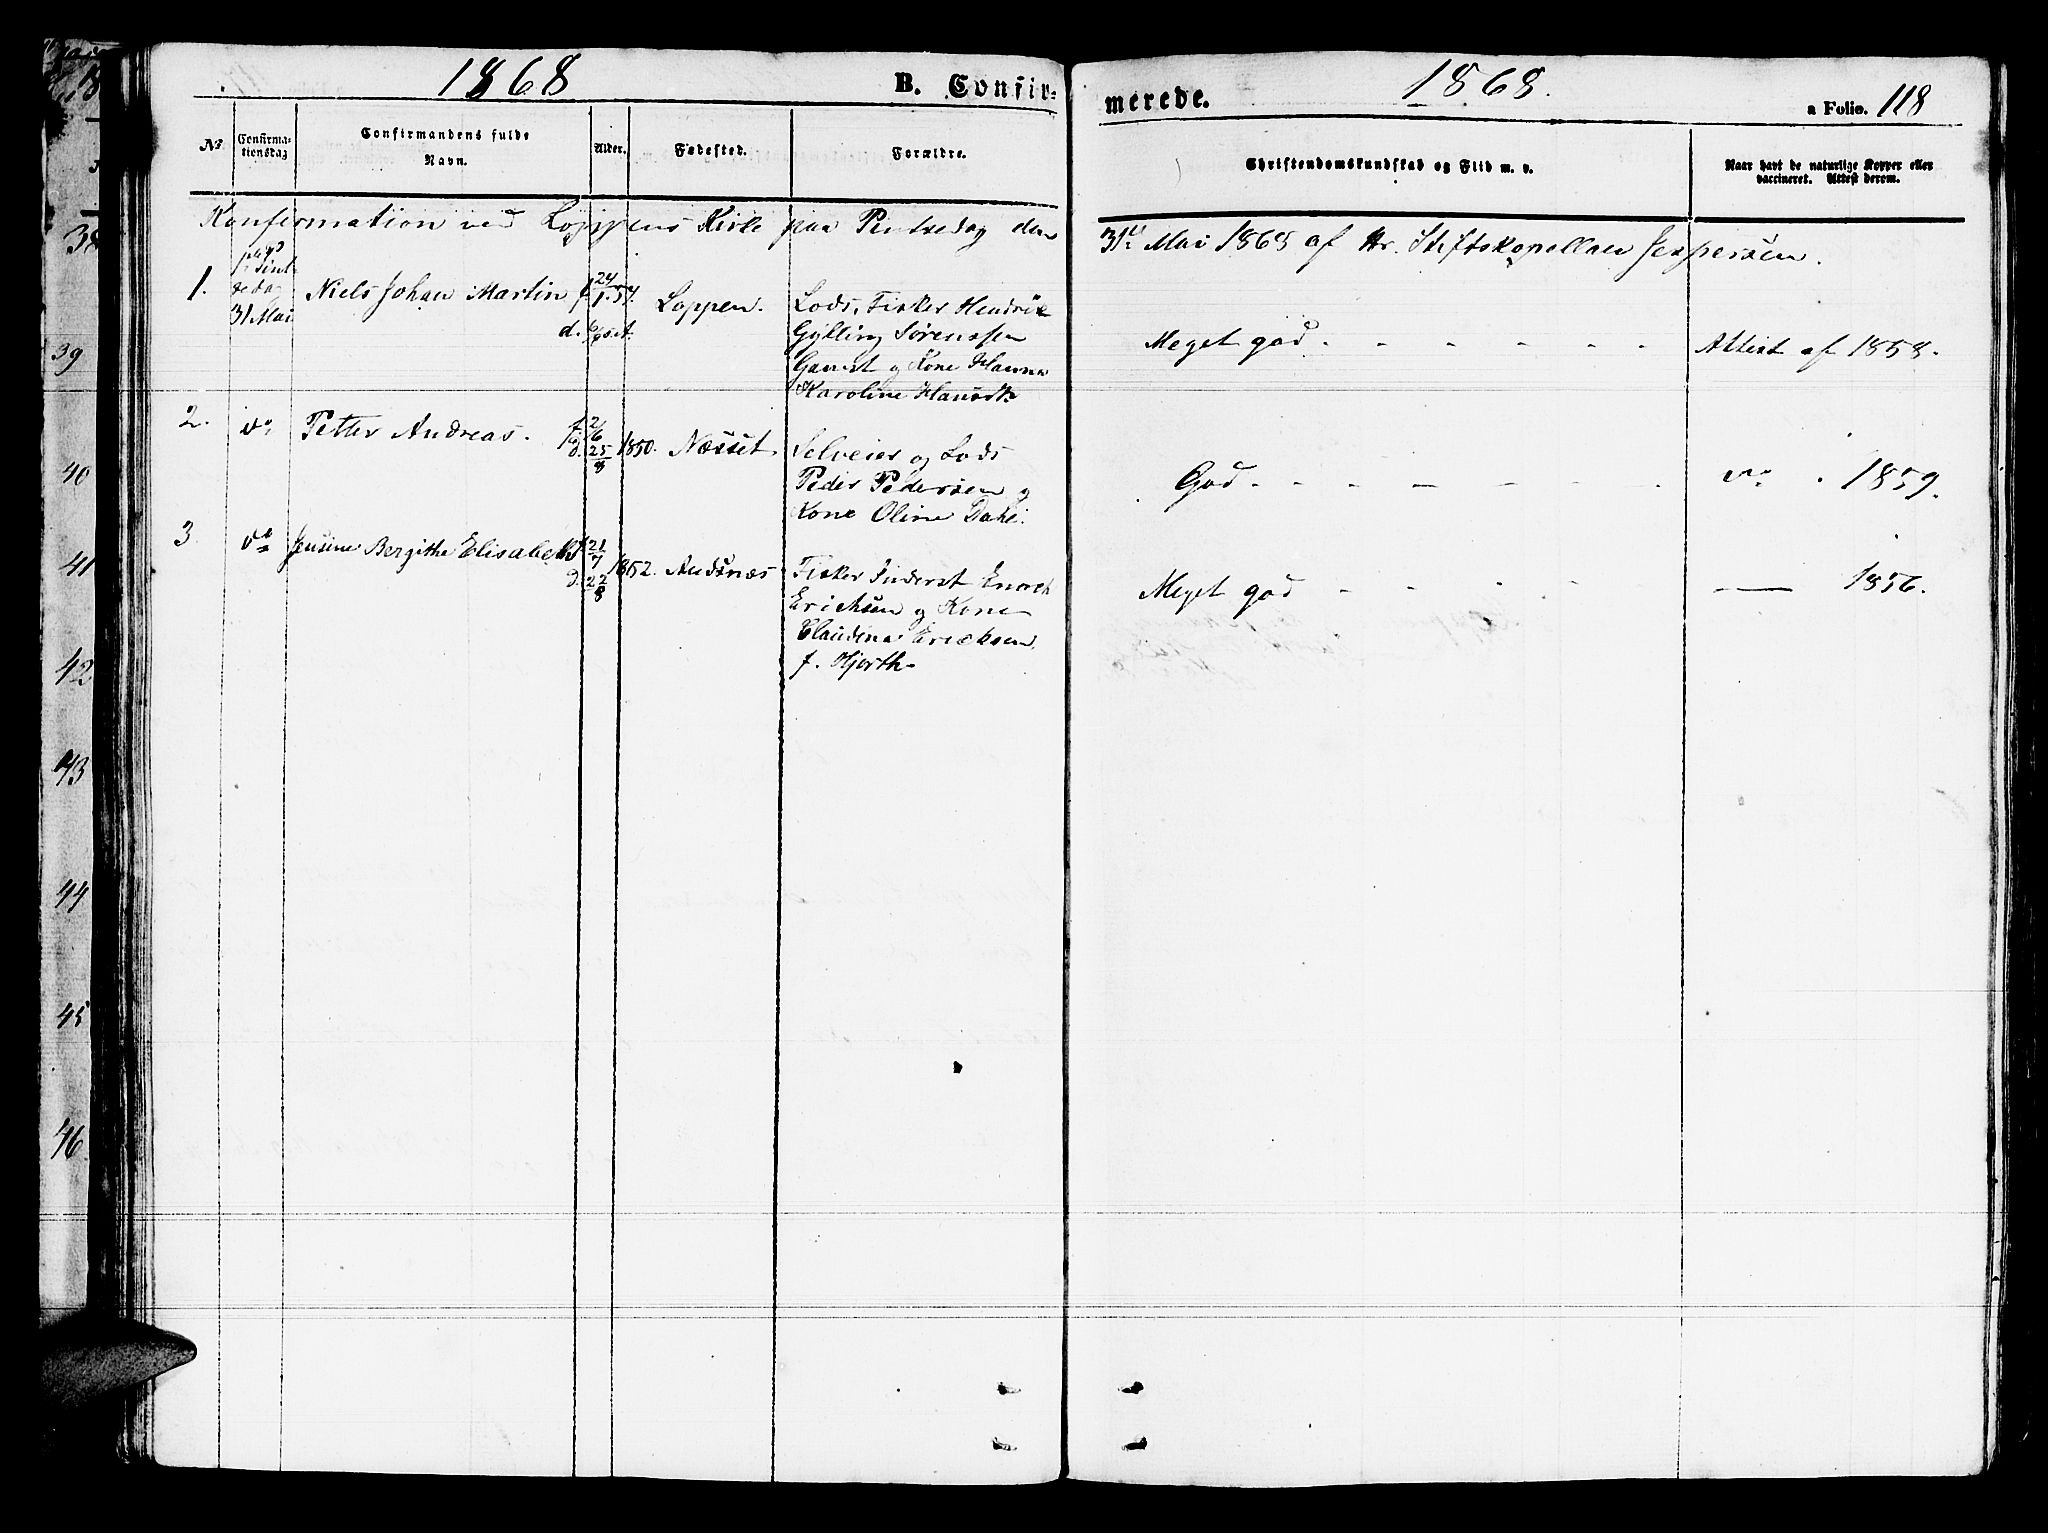 1868
B. Confir-
merede.
1868.
a Folio. 118
No.
Confirma-
tionsdag
Confirmandens fulde
Navn.
Alder.
Fødested.
Forældre.
Christendomskundskab og Flid m. v.
Naar havt de naturlige Kopper eller
vaccineret. Attest derom.
Konfirmation ved Loppens Kirke paa Pintsedag den
31te Mai 1868 af Hr. Stiftskapellan Jespersen.
1.
31 Mai
Niels Johan Martin
f. 24/1 54.
Loppen.
Lods, Fisker Hendrik
Gylling Sørenssen
og Kone Hanna
Karoline
Meget god
Attest af 1858.
2.
do
Petter Andreas.
f. 2/6
d. 25/8 1850.
Næsset
Selveier og Lods
Peder Pedersen og
Kone Oline Dahl.
God
do 1859.
3.
do
Jensine Bergithe Elisabeth
f. 21/7
d. 22/8 1852.
Andsnæs
Fisker Inderst Enoch
Erichsen og Kone
Claudina Ericksen
f. Hjorth
Meget god
— 1856.
38
39
40
41
42
43
44
45
46